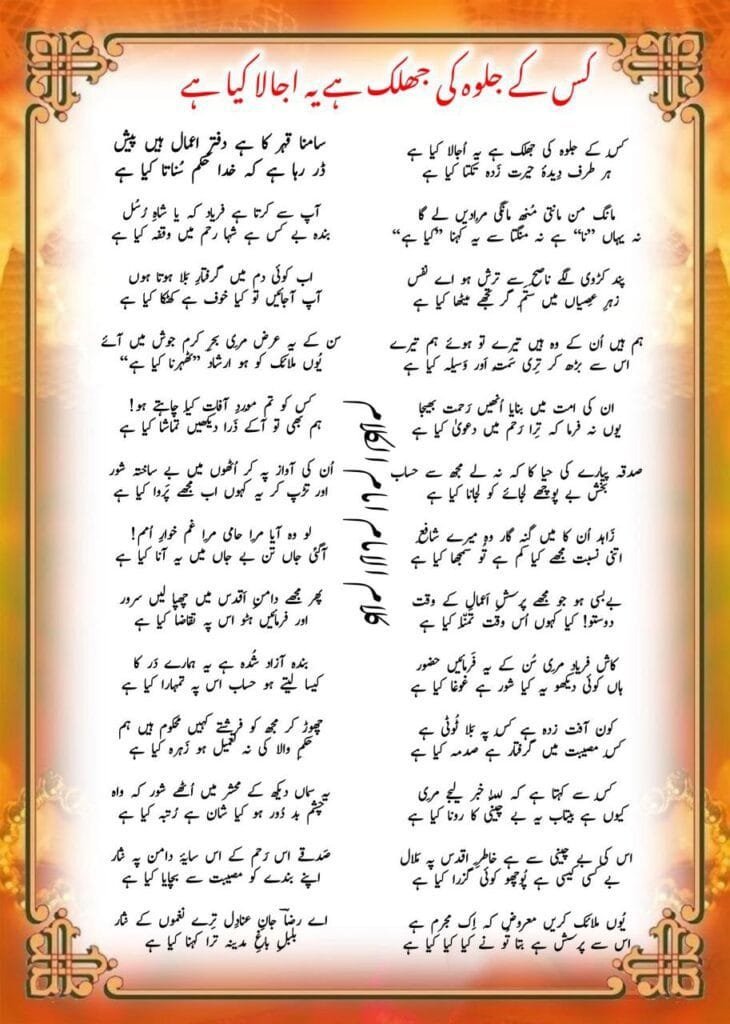 کس کے جلوہ کی جھلک ہے یہ اجالا کیا ہے
کس کے جلوہ کی جھلک ہے یہ اُجالا کیا ہے
ہر طرف دِیدۂ حیرت زَدہ تکتا کیا ہے
مانگ من مانتی مُنھ مانگی مرادیں لے گا
نہ یہاں ”نا“ ہے نہ منگتا سے یہ کہنا ”کیا ہے“
پند کڑوی لگے ناصح سے ترش ہو اے نفس
زہرِ عصیاں میں ستم گر تجھے میٹھا کیا ہے
ہم ہیں اُن کے وہ ہیں تیرے تو ہوئے ہم تیرے
اس سے بڑھ کر تِری سَمت اور وَسیلہ کیا ہے
ان کی امت میں بنایا اُنھیں رَحمت بھیجا
یوں نہ فرما کہ تِرا رَحم میں دعویٰ کیا ہے
صدقہ پیارے کی حیا کا کہ نہ لے مجھ سے حساب
بخش بے پوچھے لجائے کو لجانا کیا ہے
زاہد اُن کا میں گنہ گار وہ میرے شافع
اتنی نسبت مجھے کیا کم ہے تو سمجھا کیا ہے
بےبسی ہو جو مجھے پرسشِ اَعمال کے وقت
دوستو! کیا کہوں اُس وقت تمنّا کیا ہے
کاش فریاد مری سُن کے یہ فَرمائیں حضور
ہاں کوئی دیکھو یہ کیا شور ہے غوغا کیا ہے
کون آفت زدہ ہے کس پہ بَلا ٹُوٹی ہے
کس مصیبت میں گرفتار ہے صدمہ کیا ہے
کس سے کہتا ہے کہ للہ خبر لیجے مری
کیوں ہے بیتاب یہ بے چینی کا رونا کیا ہے
اس کی بے چینی سے ہے خاطرِ اقدس پہ مَلال
بے کسی کیسی ہے پُوچھو کوئی گزرا کیا ہے
یُوں ملائک کریں معروض کہ اِک مجرم ہے
اس سے پرسش ہے بتا تُو نے کیا کیا کیا ہے
سامنا قہر کا ہے دفترِ اعمال ہیں پیش
ڈر رہا ہے کہ خدا حکم سُناتا کیا ہے
آپ سے کرتا ہے فریاد کہ یا شاہِ رُسُل
بندہ بے کس ہے شہا رحم میں وقفہ کیا ہے
اب کوئی دم میں گرفتارِ بَلا ہوتا ہوں
آپ آجائیں تو کیا خوف ہے کھٹکا کیا ہے
سن کے یہ عرض مری بحرِ کرم جوش میں آئے
یُوں ملائک کو ہو ارشاد ”ٹھہرنا کیا ہے“
کس کو تم موردِ آفات کیا چاہتے ہو!
ہم بھی تو آکے ذَرا دیکھیں تماشا کیا ہے
اُن کی آواز پہ کر اُٹھوں میں بے ساختہ شور
اور تڑپ کر یہ کہوں اب مجھے پَروا کیا ہے
لو وہ آیا مرا حامی مرا غم خوارِ اُمم!
آگئی جاں تنِ بے جاں میں یہ آنا کیا ہے
پھر مجھے دامنِ اَقدس میں چھپا لیں سرور
اور فرمائیں ہٹو اس پہ تقاضا کیا ہے
بندہ آزاد شُدہ ہے یہ ہمارے دَر کا
کیسا لیتے ہو حساب اس پہ تمہارا کیا ہے
چھوڑ کر مجھ کو فرشتے کہیں محکوم ہیں ہم
حکمِ والا کی نہ تعمیل ہو زَہرہ کیا ہے
یہ سماں دیکھ کے محشر میں اُٹھے شور کہ واہ
چشمِ بد دُور ہو کیا شان ہے رُتبہ کیا ہے
صَدقے اس رَحم کے اس سایۂ دامن پہ نثار
اپنے بندے کو مصیبت سے بچایا کیا ہے
اے رضاؔ جانِ عنادِل تِرے نغموں کے نثار
بلبلِ باغِ مدینہ ترا کہنا کیا ہے